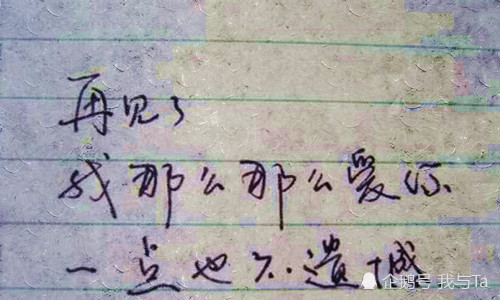 再见了
我那么那么爱你
一点也不遗憾
企鹅号 我与Ta